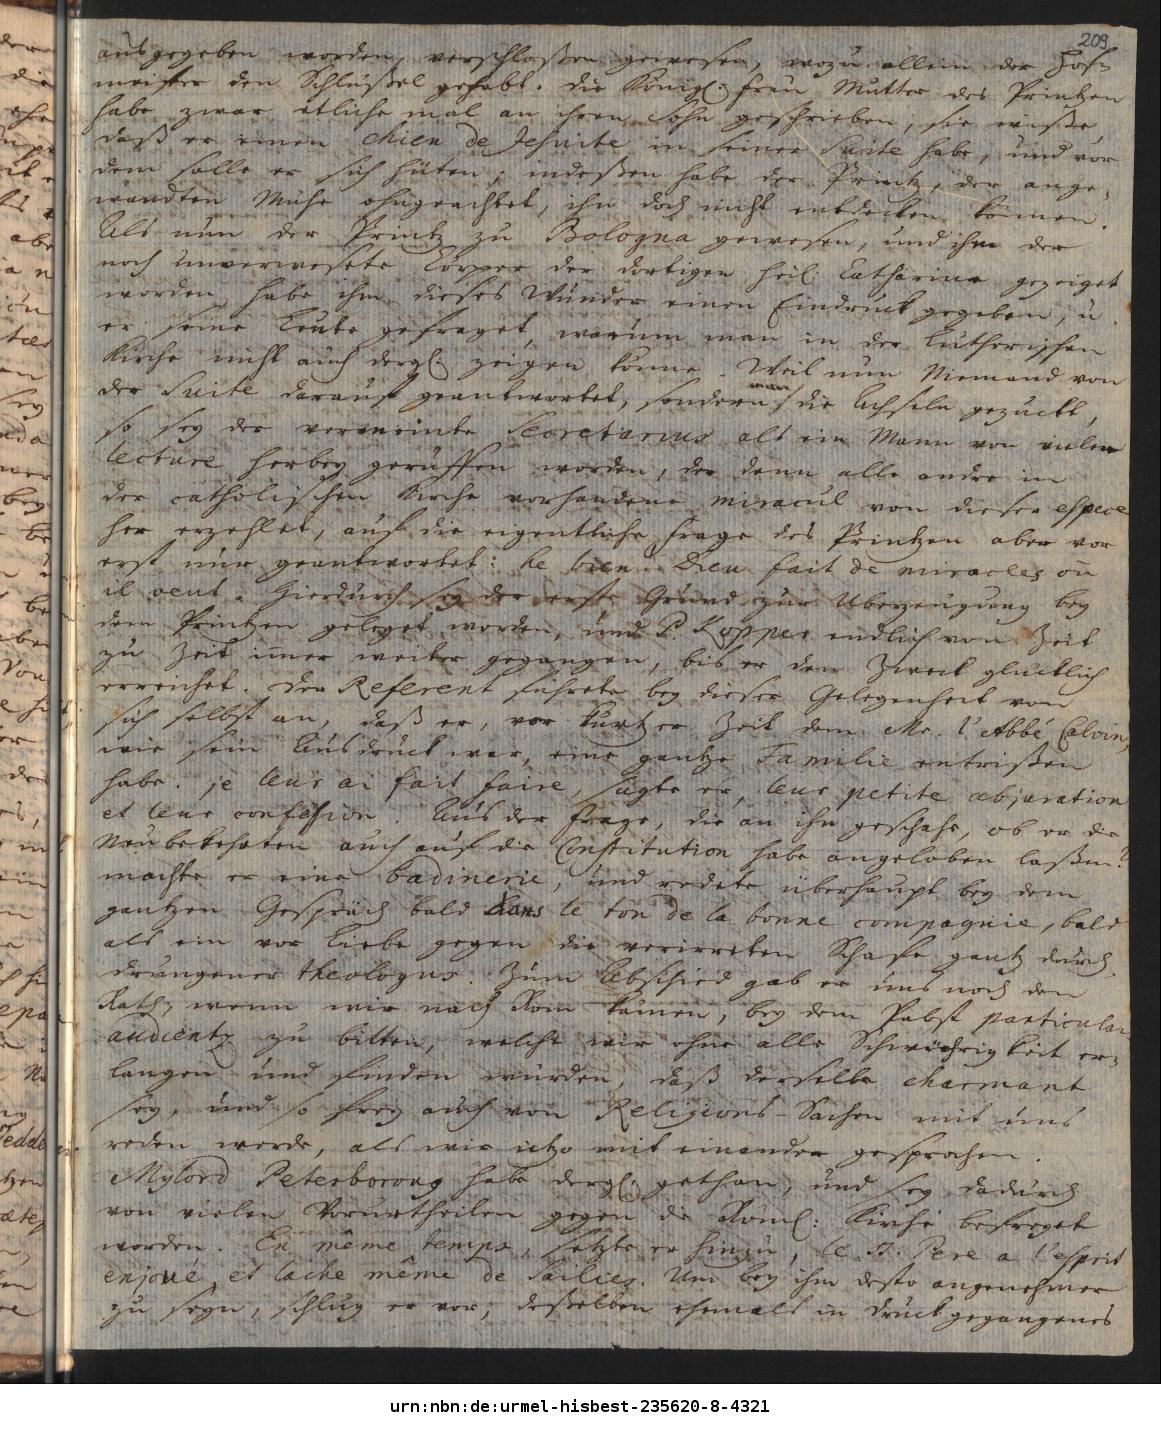 209
ausgegeben worden, verschloßen gewesen, wozu allein der Hof-
meister den Schlüßel gehabt. Die Königl: Frau Mutter des Printzen
habe zwar etliche mal an ihren Sohn geschrieben, sie wiße,
daß er einen chien de Jesuite in seiner Suite habe, und vor
dem solle er sich hüten; indeßen habe der Printz, der ange-
wandten Mühe ohngeachtet, ihn doch nicht entdecken können.
Als nun der Printz zu Bologna gewesen, und ihm der
noch unverwesete Cörper der dortigen heil: Catharina gezeiget
worden, habe ihm dieses Wunder einen Eindruck gegeben, u.
er seine Leute gefraget, warum man in der Lutherischen
Kirche nicht auch dergl: zeigen könne. Weil nun Niemand von
der Suite darauf geantwortet, sondern man die Achseln gezuckt,
so sey der vermeinte Secretarius als ein Mann von vieler
lecture herbey geruffen worden, der denn alle andre in
der catholischen Kirche vorhandene miracul von dieser espece
her erzehlet, auf die eigentliche Frage des Printzen aber vor
erst nur geantwortet: he bien. Dieu fait de miracles où
il veut. Hierdurch sey der erste Grund zur Uberzeugung bey
dem Printzen geleget worden, und P. Kopper endlich von Zeit
zu Zeit im̅er weiter gegangen, bis er den Zweck glücklich
erreichet. Der Referent führete bey dieser Gelegenheit von
sich selbst an, daß er, vor kurtzer Zeit dem Mr. l'Abbé Calvin,
wie sein Ausdruck war, eine gantze Familie entrißen
habe. je leur ai fait faire, sagte er, leur petite abjuration
et leur confession. Aus der Frage, die an ihn geschahe, ob er die
Neubekehrten auch auf die Constitution habe angeloben laßen?
machte er eine badinerie, und redete überhaupt bey dem
gantzen Gespräch bald dans le ton de la bonne compagnie, bald
als ein vor Liebe gegen die verirreten Schafe gantz durch
drungener theologus. Zum Abschied gab er uns noch den
Rath, wenn wir nach Rom kämen, bey dem Pabst particular
audientz zu bitten, welche wir ohne alle Schwierigkeit er-
langen und finden würden, daß derselbe charmant
sey, und so frey auch von Religions-Sachen mit uns
reden werde, als wir itzo mit einander gesprochen.
Mylord Peterboroug habe dergl: gethan, und sey dadurch
von vielen Vorurtheilen gegen die Röml: Kirche befreyet
worden. En même temps, setzte er hinzu, le St. Pere a l'esprit
enjoué, et lache même de sailies. Um bey ihm desto angenehmer
zu seyn, schlug er vor, deßelben ehemals in druck gegangenes
urn:nbn:de:urmel-hisbest-235620-8-4321